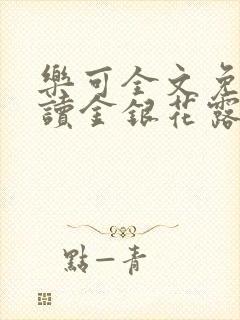 樂可全文免
讀金銀花露
點—青